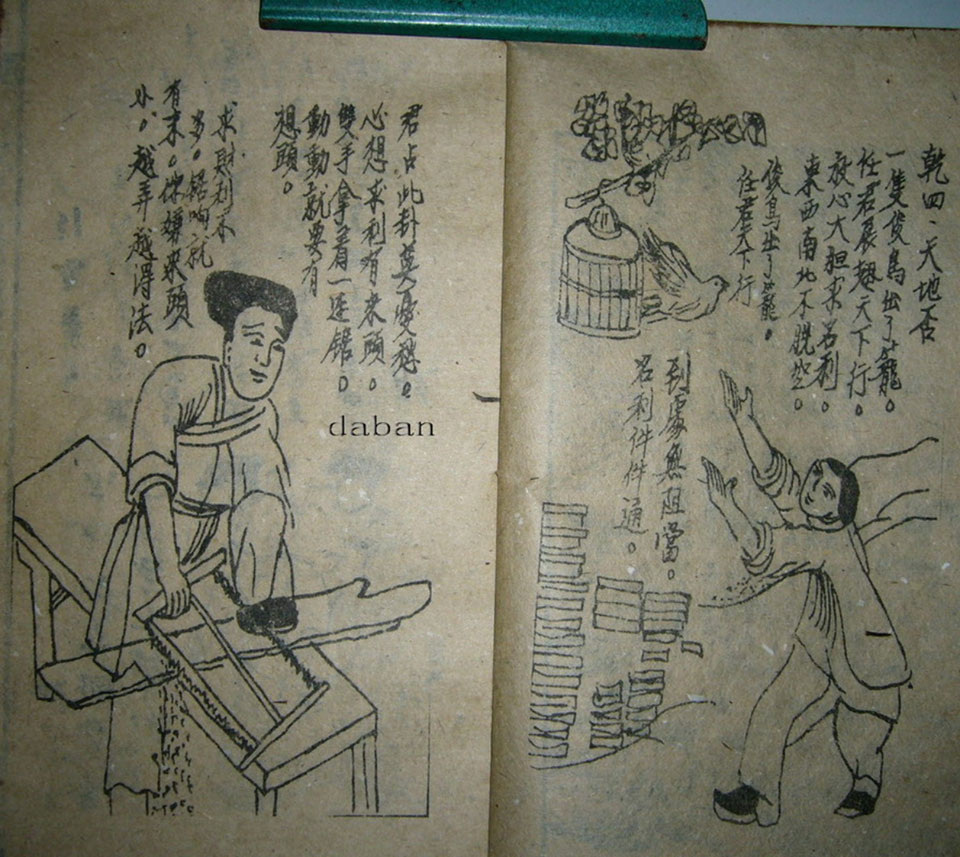 乾四、天地否
一隻俊鳥出了籠。
任君展翅天下行。
放心大担求名利。
東西南北不脱空。
俊鳥出了籠。
任君天下行
到處無阻當。
名利件件通。
君占此卦莫憂愁。
心想求利有來頭。
雙手拿着一連鋸。
動動就要有
想頭。
求利不
多。鋸响就
有末。你嫌來頭
小。越弄越得法。
daban